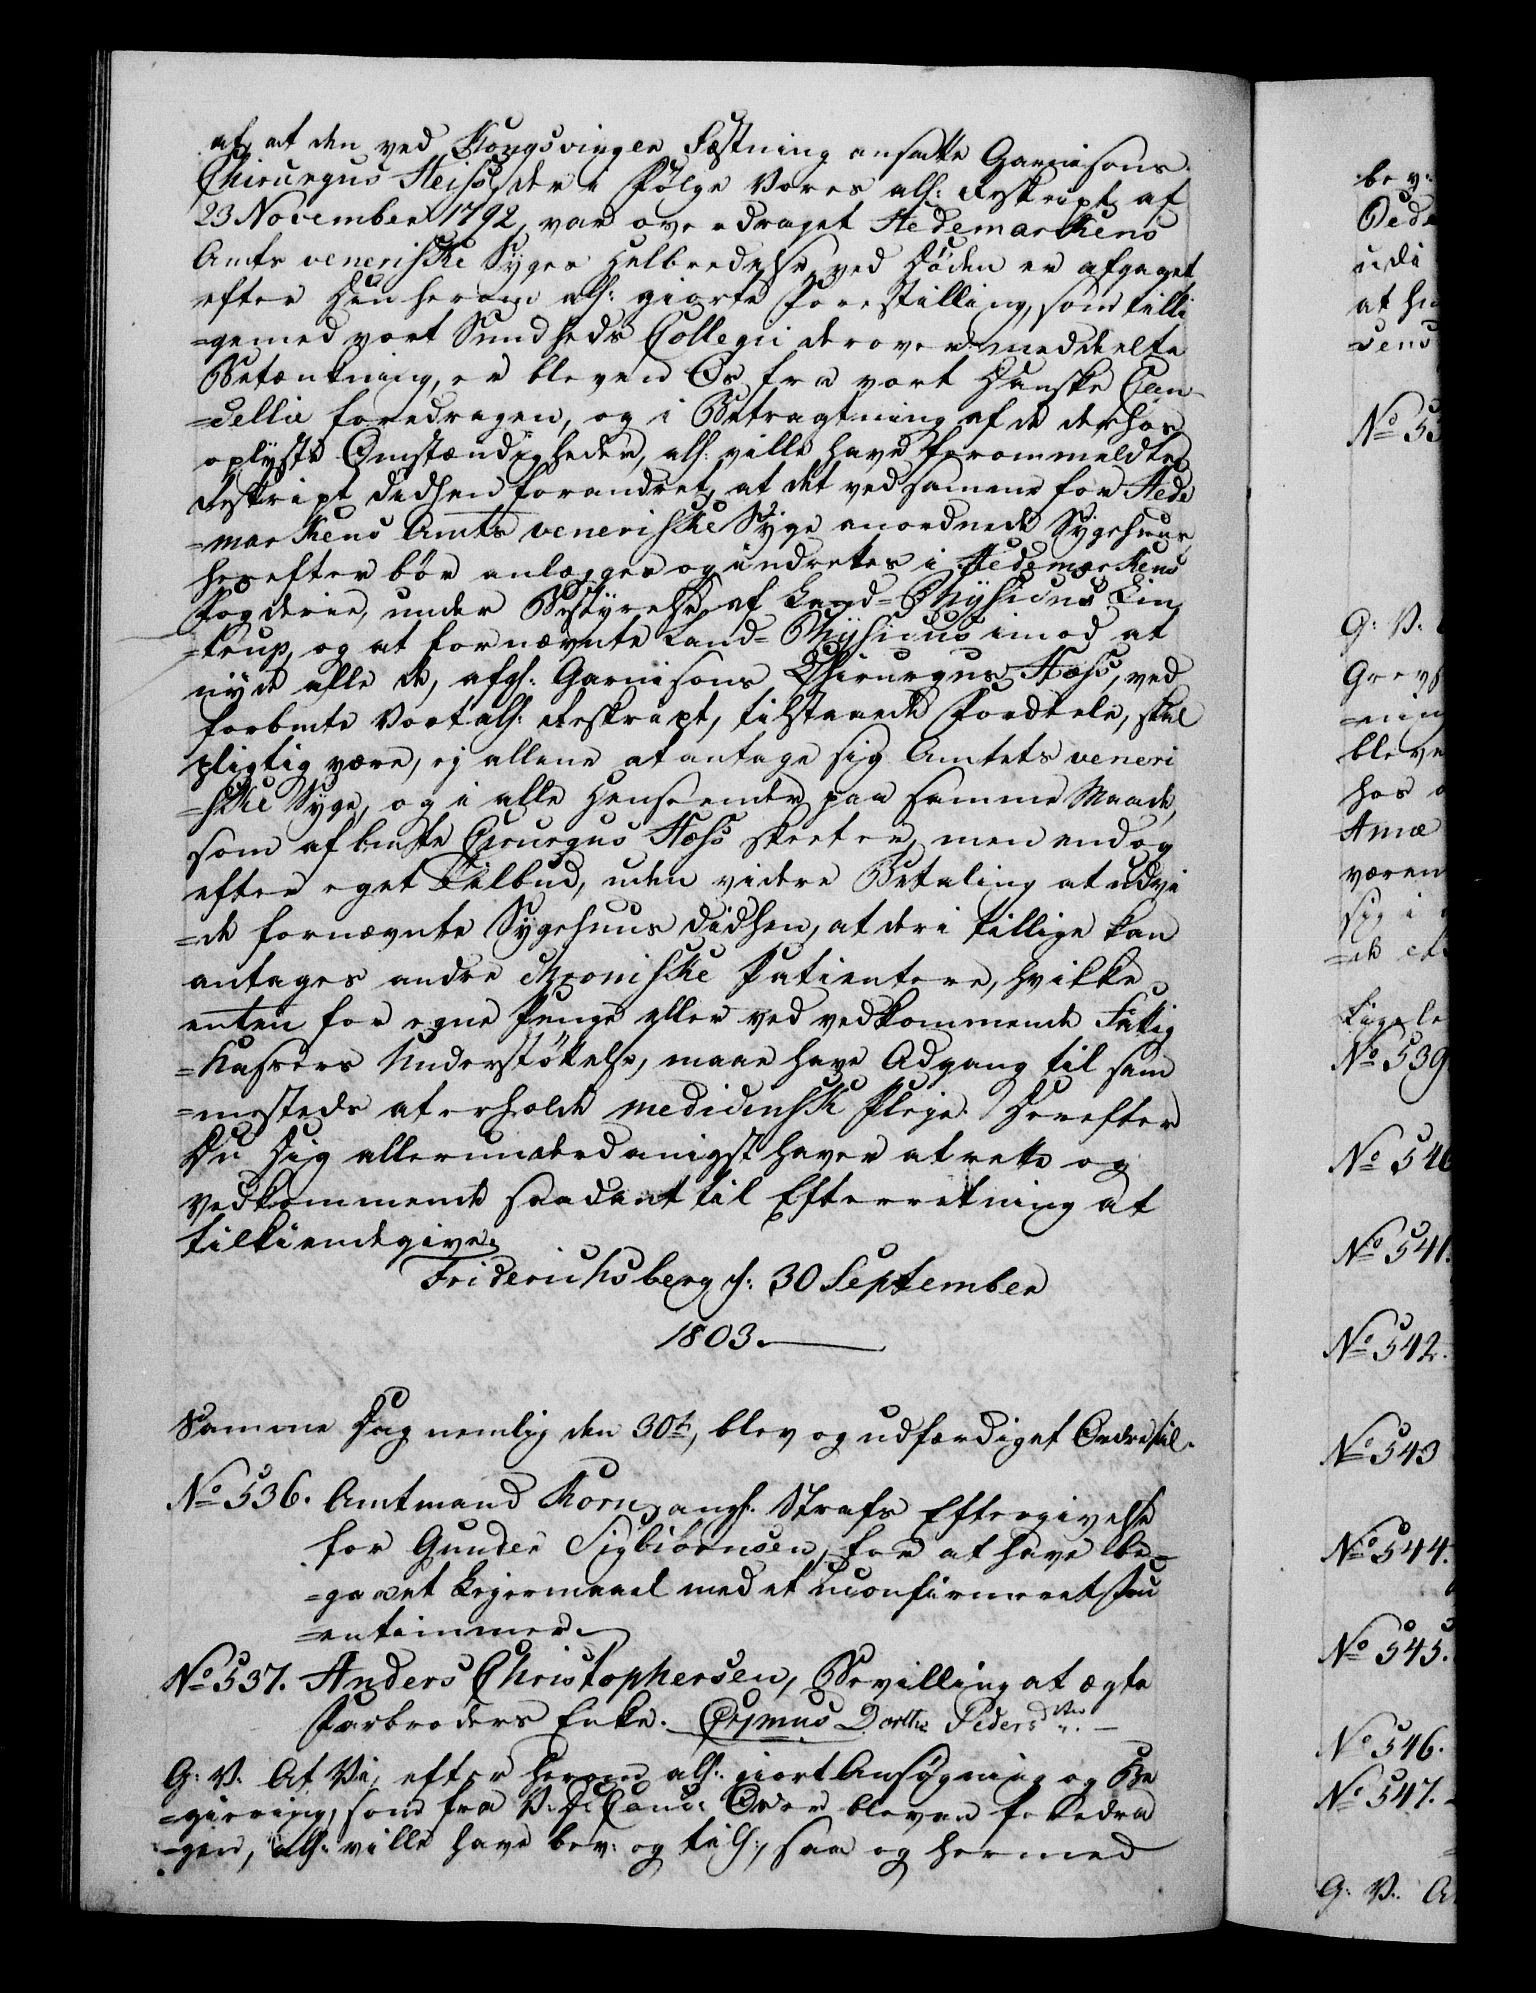 af, at den ved Kongsvinger Fæstning ansatte Garnisons
Chirurgus Heiss, der i Følge Vores alh: Reskript af
23 November 1792, var overdraget Hedemarkens
Amts veneriske Syges Helbredelse, ved Døden er afgaaet
efter Din herom alh: giorte Forestilling, som tilli
=gemed vort Sundheds Collegii derover meddeelte
Betænkning, er bleven Os fra vort Danske Can
=cellie foredragen, og i Betragtning af de derhos
oplyste Omstændigheder, alh: ville have forommeldte
Reskript didhen forandret, at det ved samme for Hede
=markens Amts veneriske Syge anordnede Sygehuus,
herefter bør anlægges og indrettes i Hedemarkens
Fogderie, under Bestyrelse af Land=Physicus Lin
=trup, og at fornævnte Land=Physicus imod at
nyde alle de, afgl: Garnisons Chirurgus Hæss, ved
forbmte Vort alh: Reskript, tilstaaede Fordeele, skal
pligtig være, ej allene at antage sig Amtets veneri
=ske Syge, og i alle Henseender paa samme Maade,
som af bmte Cirurgus Hæss skeet er, men endog
efter eget Tilbud, uden videre Betaling at udvi
=de fornævnte Sygehuus didhen, at deri tillige kan
antages andre chroniske Patientere, hvilke
enten for egne Penge eller ved vedkommende Fattig
=Kassers Understøttelse, maae have Adgang til sam
=mesteds at erholde medicinsk Pleje. Herefter
Du Dig allerunderdanigst haver at rette og
vedkommende saadant til Efterretning at
tilkiendegive.
Friderichsberg d: 30 September
1803.
Samme Dag nemlig den 30te, blev og udfærdiget Ordre til
No 536. Amtmand Korn, angl: Strafs Eftergivelse
for Gunder Sigbiørnsen, for at have be
=gaaet Lejermaal med et uconfirmeret Fru
=entimmer.
No 537. Anders Christophersen, Bevilling at ægte
Farbroders Enke. Dorthe Pedersd:
G: V. At Vi, efter herom alh: giort Ansøgning og Be
=giering, som fra V. D. Canc: Os er bleven foredra
=gen, alh: ville have bev: og till:, saa og hermed
bev:
udi
at
No 53
G: V.
bleve
hos
væren
sig i
No 539
No 540
No 541.
No 542.
No 543
No 544.
No 545.
No 546.
No 547.
G: V. A